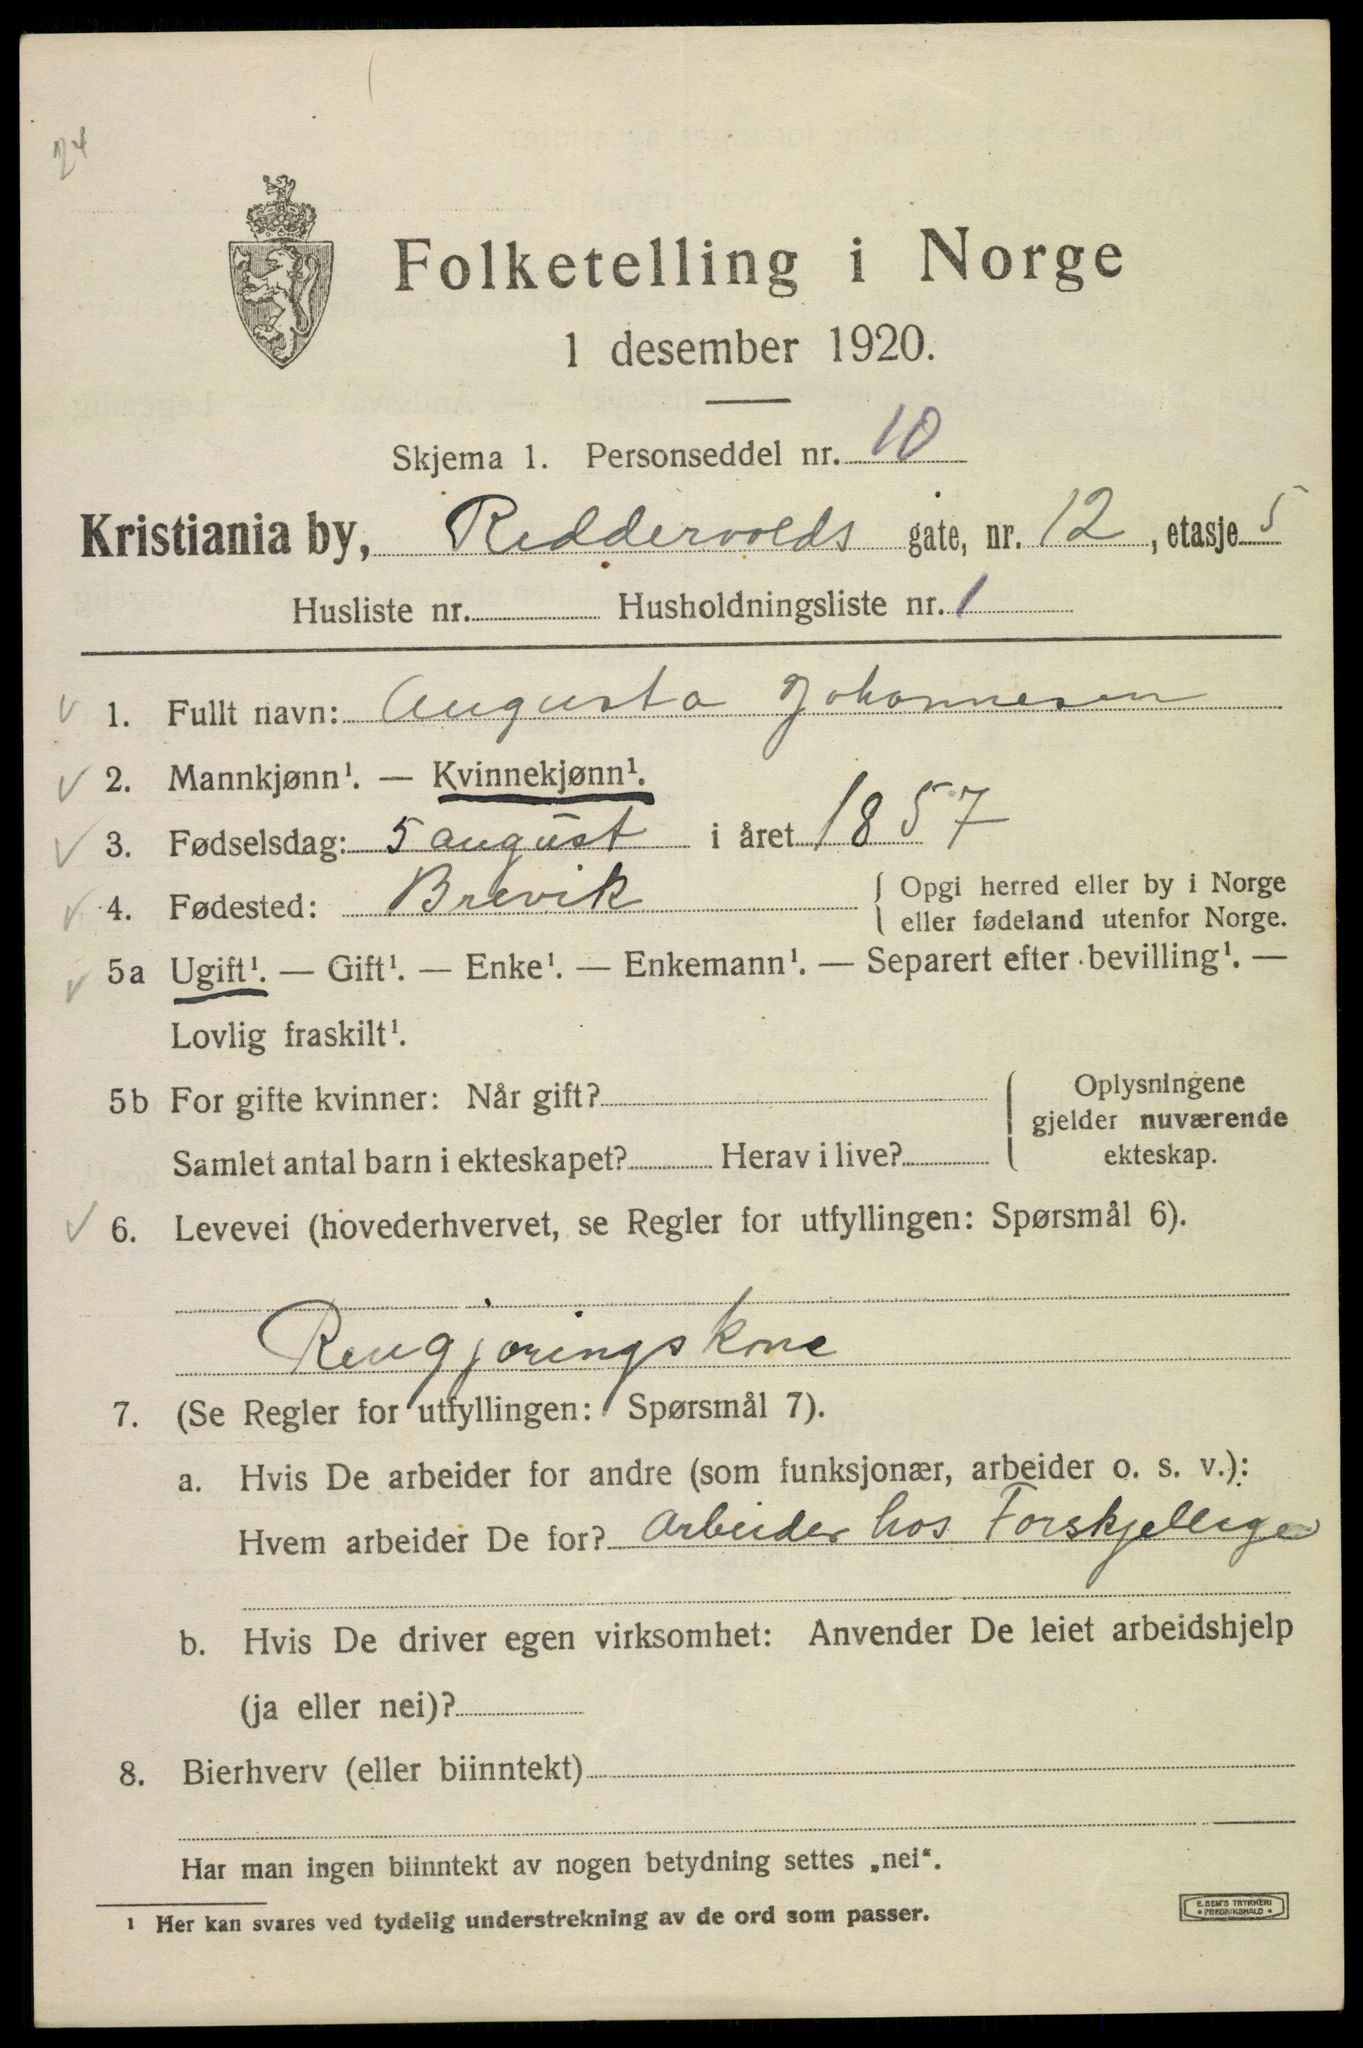 24
Folketelling i Norge
1 desember 1920.
Skjema 1. Personseddel nr. 10
Kristiania by, Riddervolds gate, nr. 12, etasje 5
Husliste nr. Husholdningsliste nr. 1
1. Fullt navn: Augusta Johannesen
2. Mannkjønn¹. — Kvinnekjønn¹.
3. Fødselsdag: 5 august i året 1857
4. Fødested: Brevik { Opgi herred eller by i Norge
eller fødeland utenfor Norge.
5a Ugift¹. — Gift¹. — Enke¹. — Enkemann¹. — Separert efter bevilling¹. —
Lovlig fraskilt¹.
5b For gifte kvinner: Når gift? { Oplysningene
gjelder nuværende
Samlet antal barn i ekteskapet? Herav i live? ekteskap.
6. Levevei (hovederhvervet, se Regler for utfyllingen: Spørsmål 6).
Rengjøringskone
7. (Se Regler for utfyllingen: Spørsmål 7).
a. Hvis De arbeider for andre (som funksjonær, arbeider o. s. v.):
Hvem arbeider De for? Arbeider hos Forskjellige
b. Hvis De driver egen virksomhet: Anvender De leiet arbeidshjelp
(ja eller nei)?
8. Bierhverv (eller biinntekt)
Har man ingen biinntekt av nogen betydning settes „nei“.
¹ Her kan svares ved tydelig understrekning av de ord som passer.
E. SEM'S TRYKKERI
* FREDRIKSHALD *